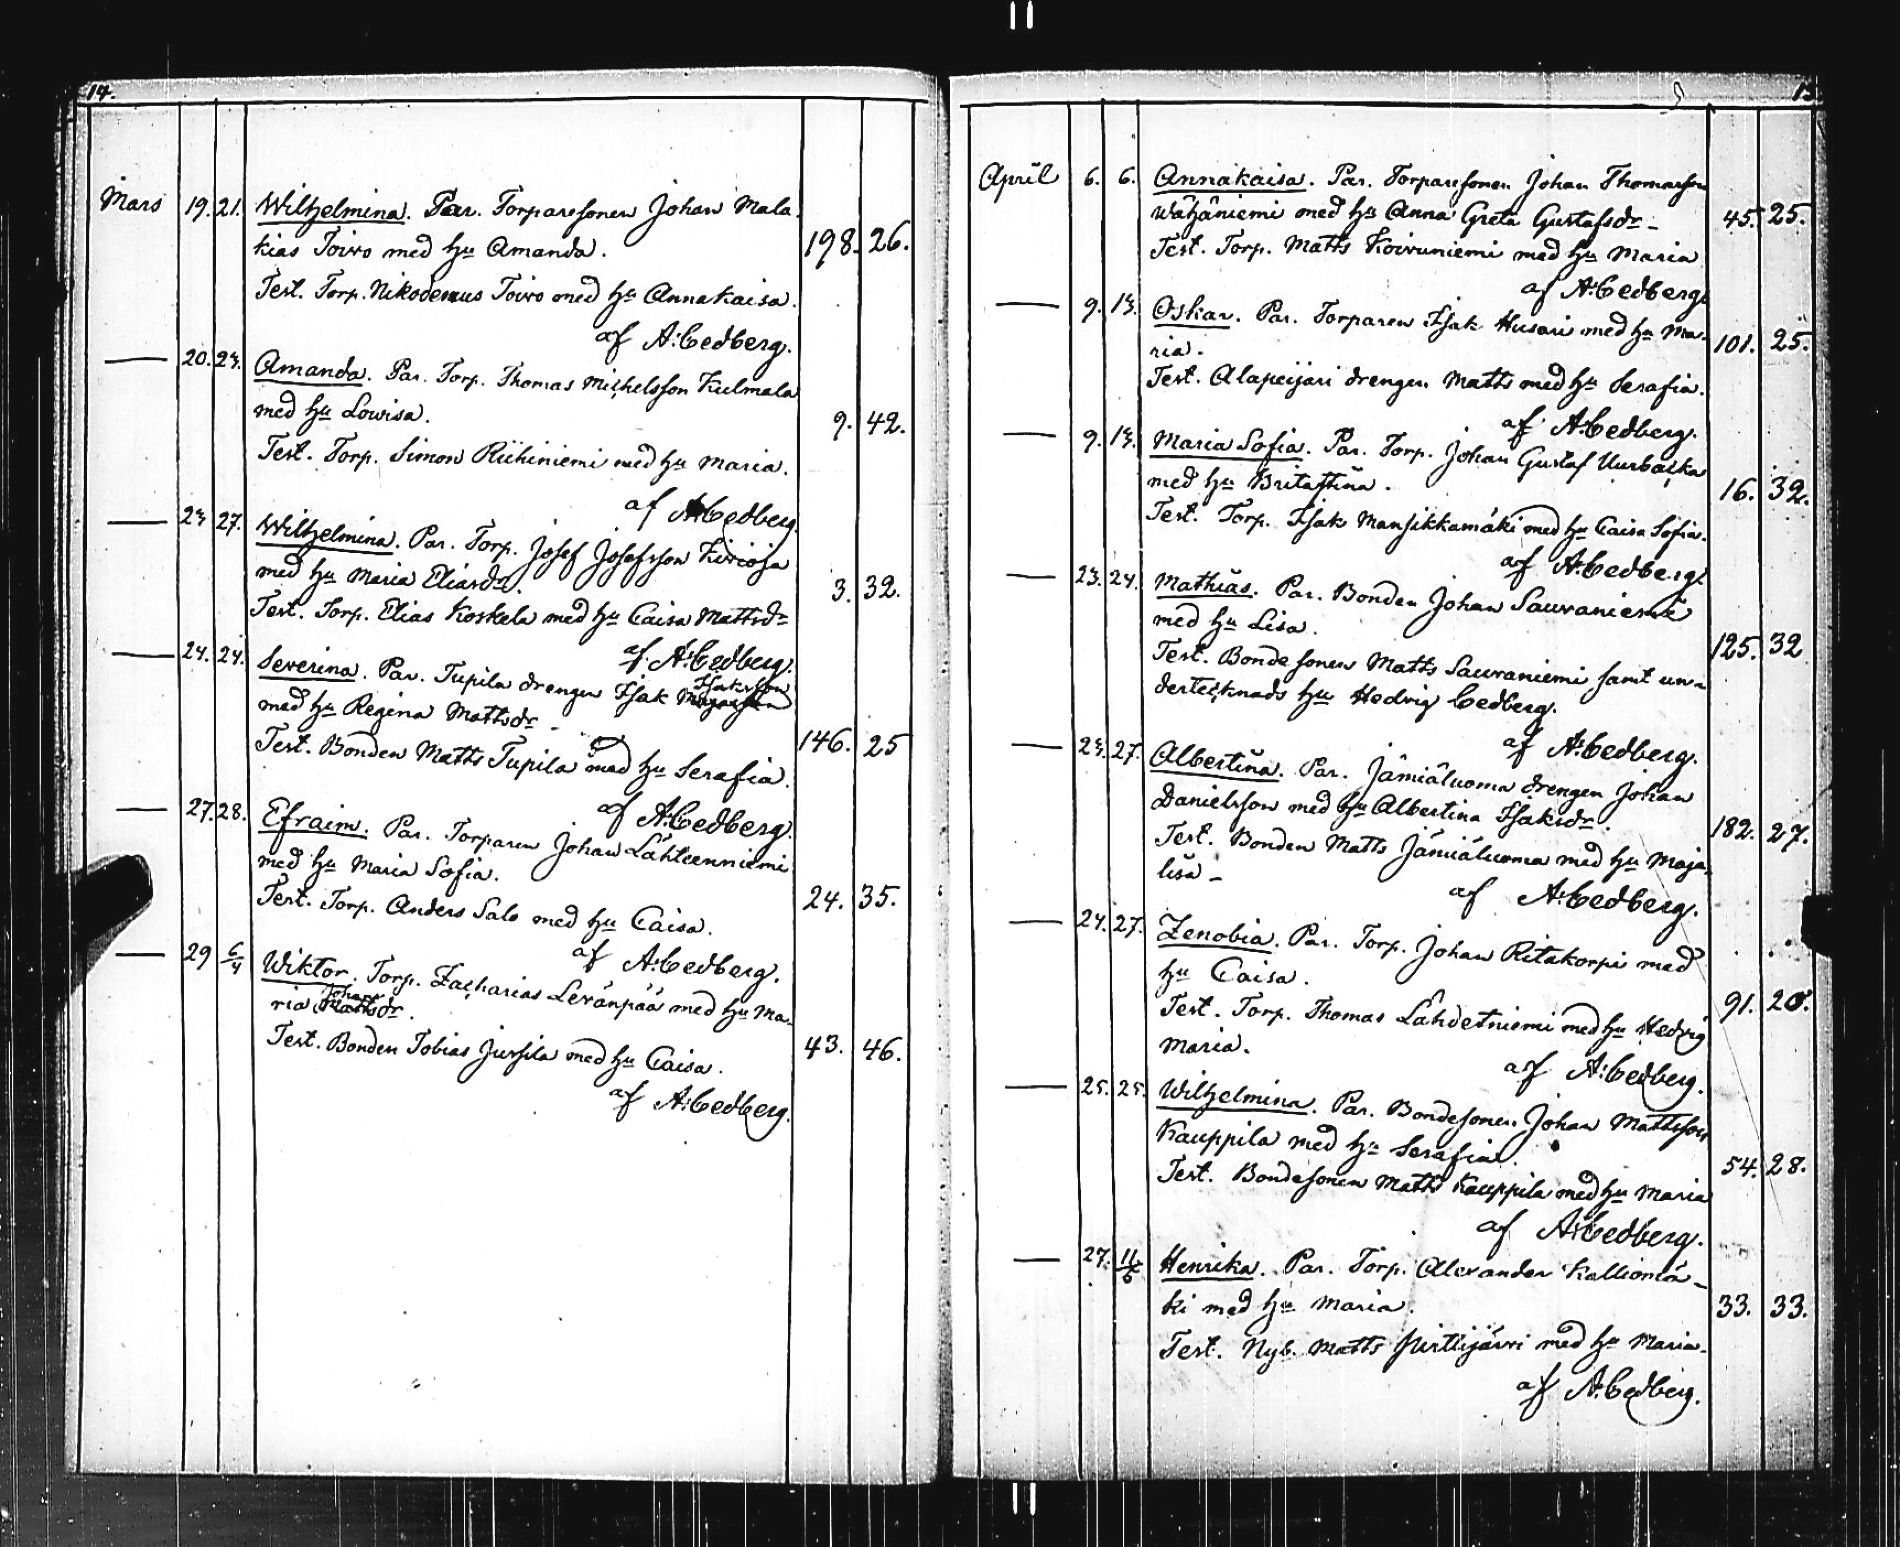 14.
Mars 19. 21. Wilhelmina. Par. Torparesonen Johan Mala-
kias Toivo med hu Amanda. 198. 26.
Test. Torp. Nikodemus Toivo med hu Annakaisa.
af A. Cedberg.
— 20. 23. Amanda. Par. Torp. Thomas Michelsson Kulmala
med hu Lowisa. 9. 42.
Test. Torp. Simon Riihiniemi med hu Maria.
af A. Cedberg.
— 23 27. Wilhelmina. Par. Torp. Josef Josefsson Kivioja
med hu Maria Eliasdr. 3. 32.
Test. Torp. Elias Koskela med hu Caisa Mattsdr
af A. Cedberg.
— 24. 24. Severina. Par. Tupila drengen Isak Isaksson
med hu Regina Mattsdr 146. 25
Test. Bonden Matts Tupila med hu Serafia.
af A. Cedberg.
— 27. 28. Efraim. Par. Torparen Johan Lähteenniemi
med hu Maria Sofia. 24. 35.
Test. Torp. Anders Salo med hu Caisa.
af A. Cedberg.
— 29 6/4 Wiktor. Torp. Zacharias Levänpää med hu Ma-
ria Johansdr. 43. 46.
Test. Bonden Tobias Jussila med hu Caisa.
af A. Cedberg.
15
April 6. 6. Annakaisa. Par. Torparesonen Johan Thomasson
Wähäniemi med hu Anna Greta Gustafsdr 45. 25.
Test. Torp. Matts Koivuniemi med hu Maria
af A. Cedberg.
— 9. 13. Oskar. Par. Torparen Isak Husari med hu Ma-
ria. 101. 25.
Test. Alapeijari drengen Matts med hu Serafia.
af A. Cedberg.
— 9. 13. Maria Sofia. Par. Torp. Johan Gustaf Uurbacka
med hu Britastina. 16. 32.
Test. Torp. Isak Mansikkamäki med hu Caisa Sofia.
af A. Cedberg.
— 23. 24. Mathias. Par. Bonden Johan Sauvaniemi
med hu Lisa. 125. 32
Test. Bondesonen Matts Sauvaniemi samt un-
dertecknads hu Hedvig Cedberg.
af A. Cedberg.
— 23. 27. Albertina. Par. Jämiäluoma drengen Johan
Danielsson med hu Albertina Isaksdr. 182. 27.
Test. Bonden Matts Jämiäluoma med hu Maja-
lisa
af A. Cedberg.
— 24. 27. Zenobia. Par. Torp. Johan Ritakorpi med
hu Caisa. 91. 20.
Test. Torp. Thomas Lähdetniemi med hu Hedvig
Maria.
af A. Cedberg.
— 25. 25. Wilhelmina. Par. Bondesonen Johan Mattsson
Kauppila med hu Serafia. 54. 28.
Test. Bondesonen Matts Kauppila med hu Maria
af A. Cedberg.
— 27. 11/5 Henrika. Par. Torp. Alexander Kalliomä-
ki med hu Maria. 33. 33.
Test. Nyb. Matts Pirttijärvi med hu Maria.
af A. Cedberg.